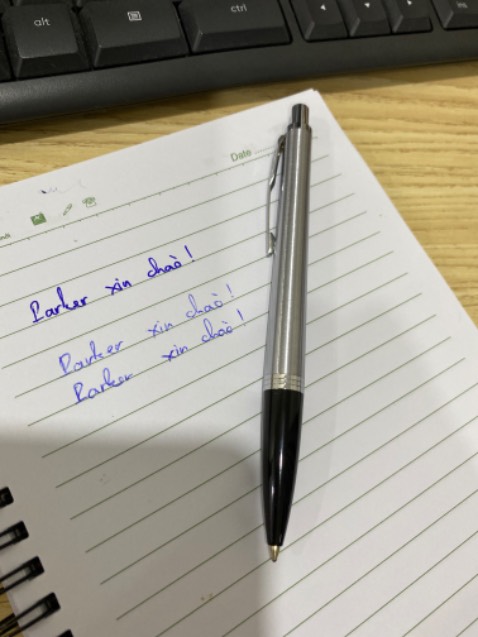 alt
ctrl
Date
Parker xin chaò!
Parker xin chaò!
Parker xin chaò!